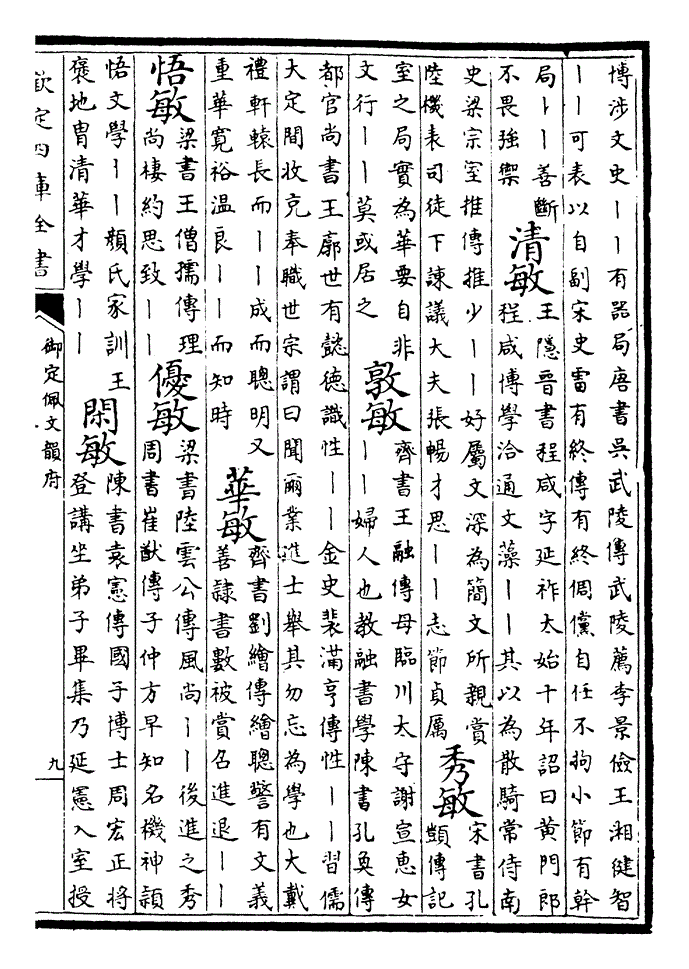 博涉文史丨丨有器局唐書吳武陵傳武陵薦李景儉王湘健智
丨丨可表以自副宋史雷有終傳有終倜儻自任不拘小節有幹
局丨丨善斷 清敏 王隱晉書程咸字延祚太始十年詔曰黄門郎
不畏強禦 程咸博學洽通文藻丨丨其以為散騎常侍南
史梁宗室推傳推少丨丨好屬文深為簡文所親賞
陸機表司徒下諫議大夫張暢才思丨丨志節貞厲 秀敏 宋書孔
顗傳記
室之局實為華要自非 敦敏 齊書王融傳母臨川太守謝宣惠女
文行丨丨莫或居之 丨丨婦人也教融書學陳書孔奐傳
都官尚書王廓世有懿德識性丨丨金史裴滿亨傳性丨丨習儒
大定間收充奉職世宗謂曰聞爾業進士舉其勿忘為學也大戴
禮軒轅長而丨丨成而聰明又 華敏 齊書劉繪傳繪聰警有文義
重華寛裕温良丨丨而知時 善隷書數被賞召進退丨丨
悟敏 梁書王僧孺傳理
尚棲約思致丨丨 優敏 梁書陸雲公傳風尚丨丨後進之秀
周書崔猷傳子仲方早知名機神頴
悟文學丨丨顔氏家訓王
褒地胄清華才學丨丨 閑敏 陳書袁憲傳國子博士周宏正將
登講坐弟子畢集乃延憲入室授
欽定四庫全書
御定佩文韻府
九